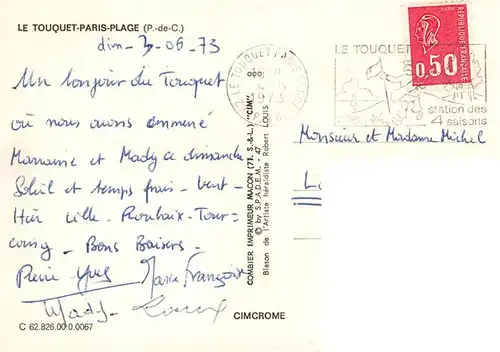 LE TOUQUET-PARIS-PLAGE (P.-de-C.)
dim - 3-06-73
Un bonjour du Touquet
où nous avons emmené
Mamanie et Mady ce dimanche
Soleil et temps frais - Vent -
Hier Lille - Roubaix - Tour-
coing - Bons Baisers -
Pierre-Yves Marie Françoise
Mady
C 62.826.00.0.0067
CIMCROME
COMBIER IMPRIMEUR MACON (71, S.-&-L.) "CIM"
© by S.P.A.D.E.M. - 47
Blason de l'Artiste héraldiste Robert LOUIS
LE TOUQUET PARIS
1973
LE TOUQUET
station des
4 saisons
REPUBLIQUE FRANÇAISE
0,50
Monsieur et Madame Michel